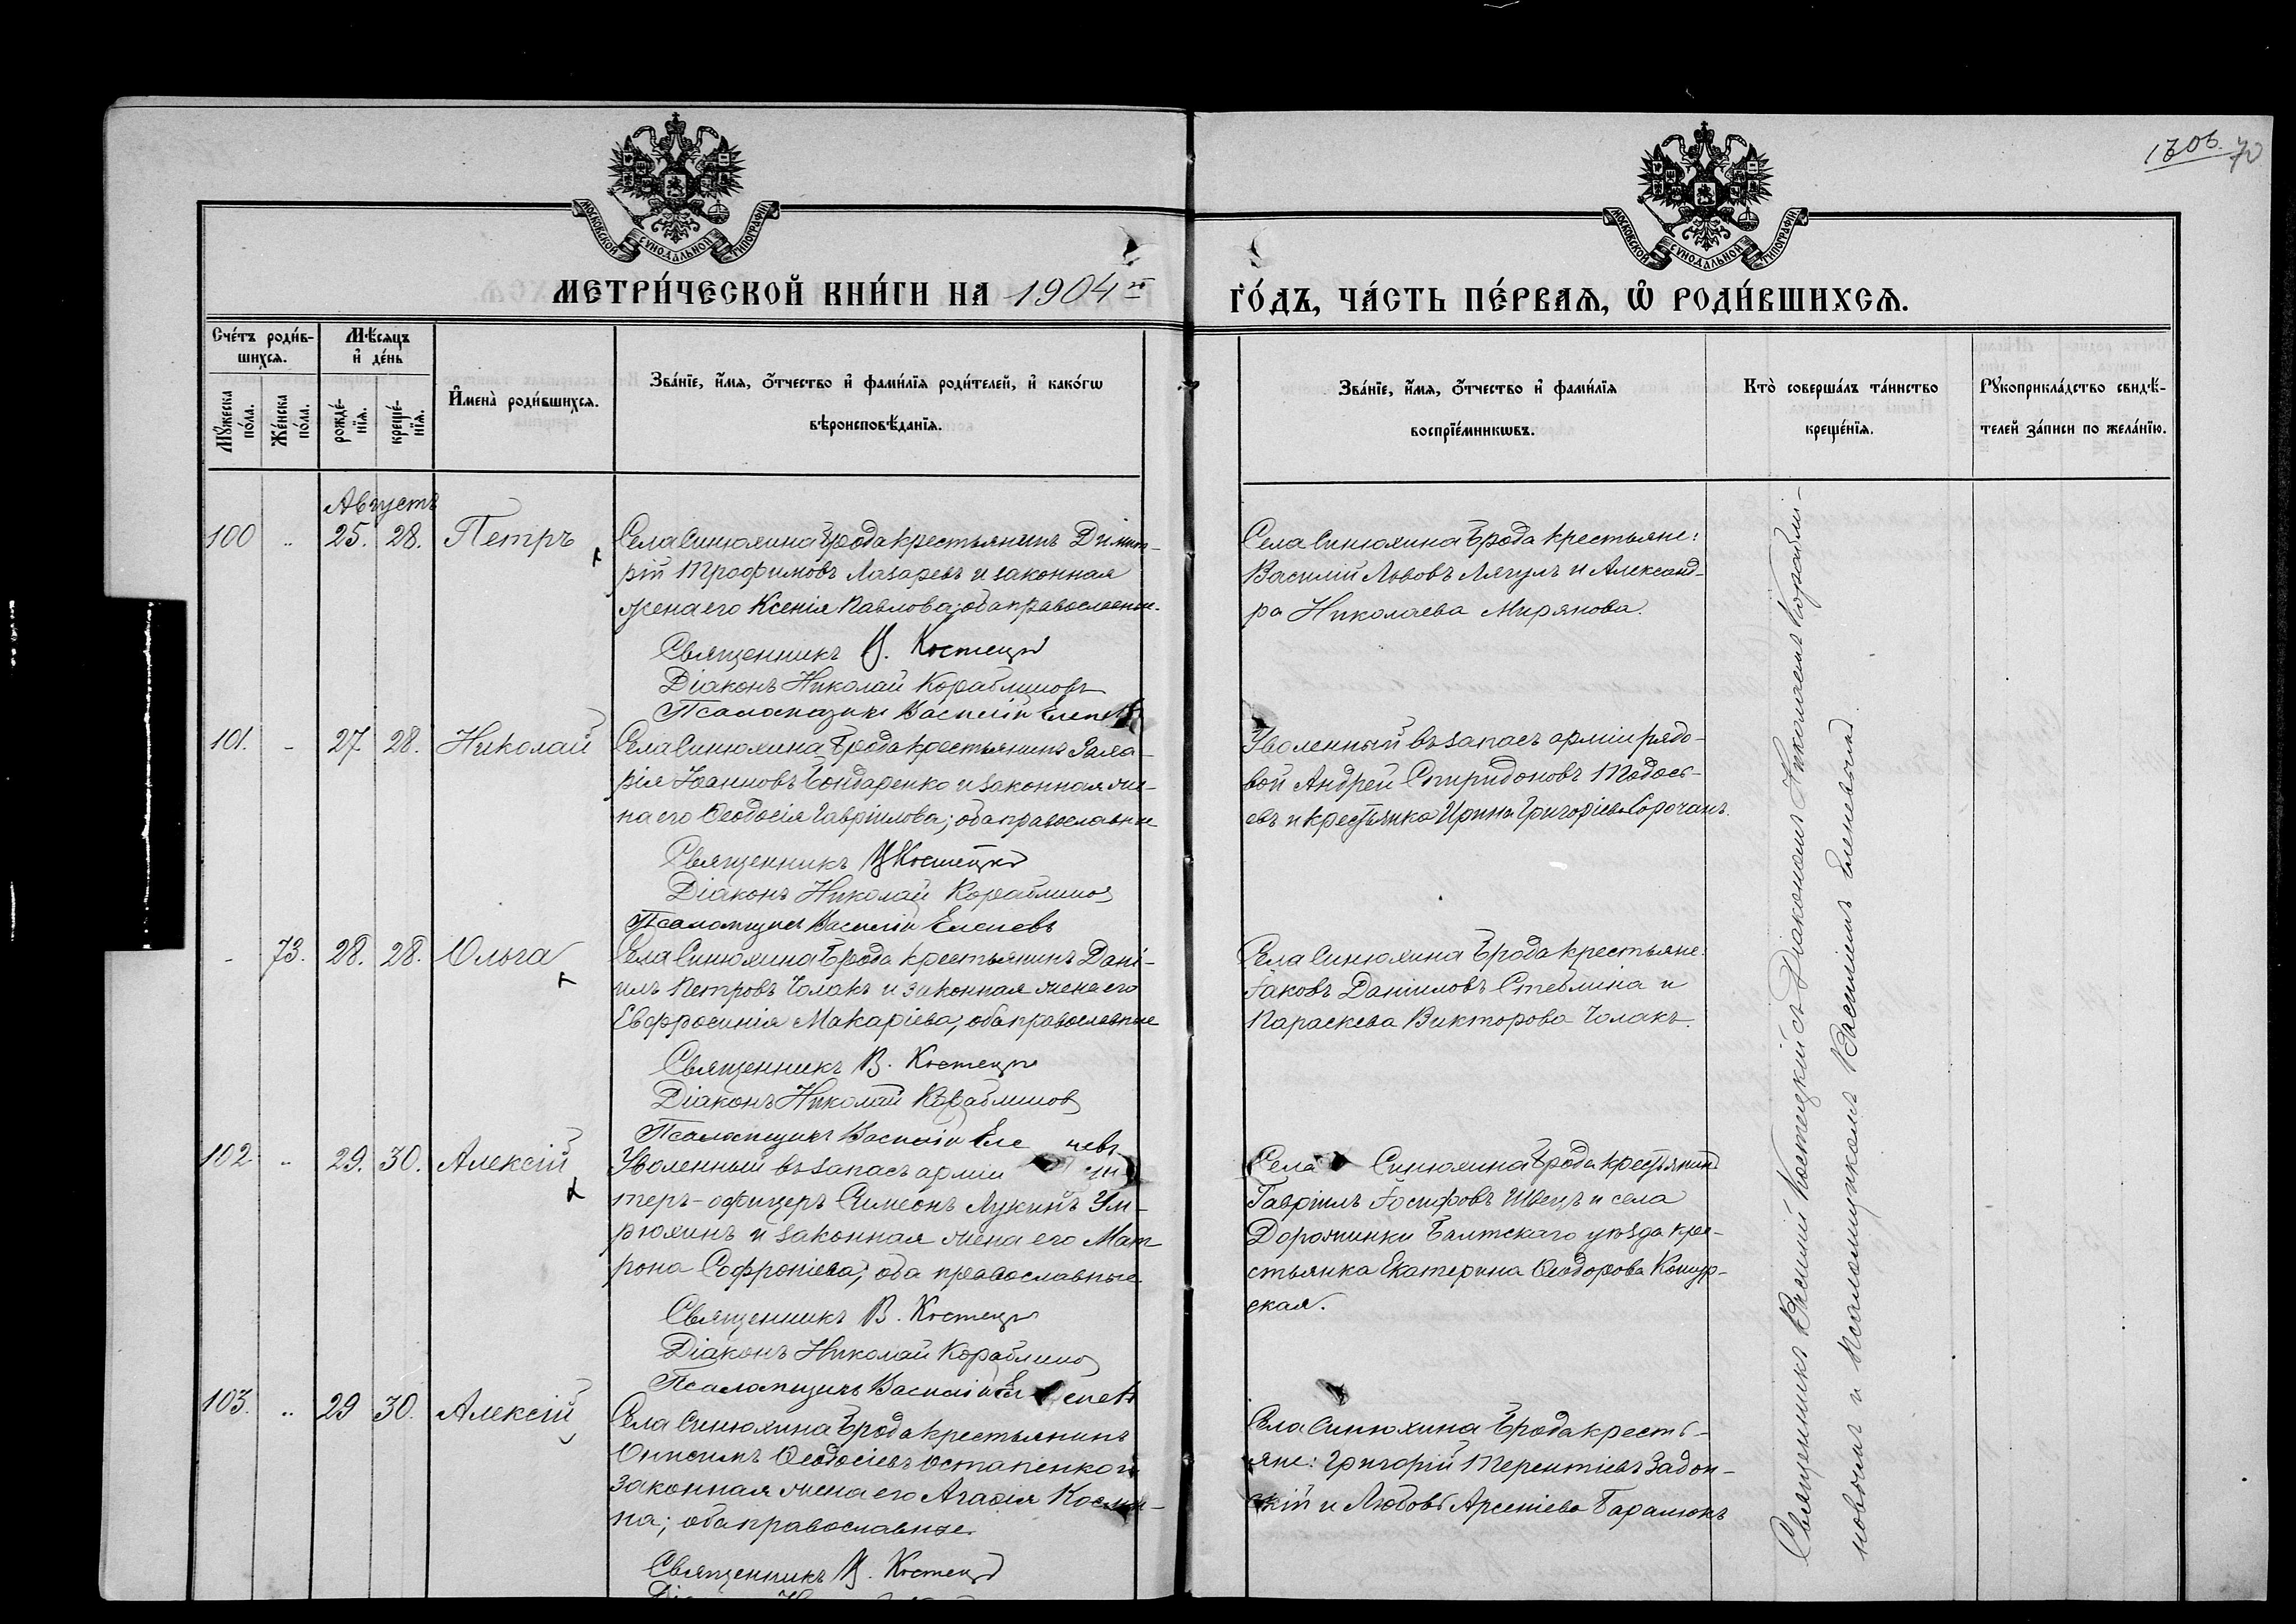 1306. 70
МОСКОВСКОЙ СѴНОДАЛЬНОЙ ТИПОГРАФІИ
МОСКОВСКОЙ СѴНОДАЛЬНОЙ ТИПОГРАФІИ
МЕТРИ́ЧЕСКОЙ КНИ́ГИ НА 1904й
ГО́ДЪ, ЧА́СТЬ ПЕ́РВАѦ, Ѡ РОДИ́ВШИХСѦ.
Сче́тъ роди́в-
шихсѧ.
Мѣ́сѧцъ
и҆ де́нь
Мꙋ́жеска
по́ла.
Же́нска
по́ла.
рожде́-
нїѧ.
креще́-
нїѧ.
И҆мена̀ роди́вшихсѧ.
Зва́нїе, и҆́мѧ, ѻ҆́тчество и҆ фами́лїѧ роди́телей, и҆ како́гѡ
вѣроисповѣ́данїѧ.
Зва́нїе, и҆́мѧ, ѻ҆́тчество и҆ фами́лїѧ
воспрїе́мникѡвъ.
Кто̀ соверша́лъ та́инство
креще́нїѧ.
Рꙋкоприкла́дство свидѣ́-
телей за́писи по жела́нїю.
Августъ
100 „ 25. 28. Петръ
Села Синюхина Брода крестьянинъ Димит-
рій Трофимовъ Лазаревъ и законная
жена его Ксенія Павлова; оба православные.
Священникъ В. Костецкій
Діаконъ Николай Кораблиновъ
Псаломщикъ Василій Еленевъ
Села Синюхина Брода крестьяне:
Василій Львовъ Лягулъ и Александ-
ра Николаева Мирянова.
101. - 27. 28. Николай
Села Синюхина Брода крестьянинъ
рія Іоанновъ Бондаренко и законная же-
на его Ѳеодосія Гавріилова; оба православные
Священникъ В Костецкій
Діаконъ Николай Кораблиновъ
Псаломщикъ Василій Еленевъ
Уволенный въ запасъ арміи рядо-
вой Андрей Спиридоновъ Тодось-
евъ и крестьянка Ирина Григоріева Сорочанъ.
- 73. 28. 28. Ольга
Села Синюхина Брода крестьянинъ Дані-
илъ Петровъ Чолакъ и законная жена его
Евфросинія Макаріева; оба православные
Священникъ В. Костецкій
Діаконъ Николай Кораблиновъ
Псаломщикъ Василій Еле невъ
Села Синюхина Брода крестьяне:
Іаковъ Даніиловъ Стеблина и
Параскева Викторова Чолакъ.
102 „ 29. 30. Алексій
Уволенный въ запасъ арміи ун-
теръ-офицеръ Симеонъ Лукинъ Ум-
рюхинъ и законная жена его Мат-
рона Софроніева; оба православные.
Священникъ В. Костецкій
Діаконъ Николай Кораблиновъ
Псаломщикъ Василій Еленевъ
Села Синюхина Брода крестьянинъ
Гавріилъ Іосифовъ Швецъ и села
Дорожинки Балтскаго уѣзда кре-
стьянка Екатерина Ѳеодорова Кошур-
ская.
103. „ 29 30. Алексій
Села Синюхина Брода крестьянинъ
Онисимъ Ѳеодосіевъ Остапенко и
законная жена его Агафія Косми-
на; оба православные.
Священникъ В. Костецкій
Села Синюхина Брода кресть-
яне: Григорій Терентіевъ Задон-
скій и Любовь Арсеніева Баранюкъ
Священникъ Василій Костецкій съ Діакономъ Николаемъ Корабли-
новымъ и Псаломщикомъ Василіемъ Еленевымъ.